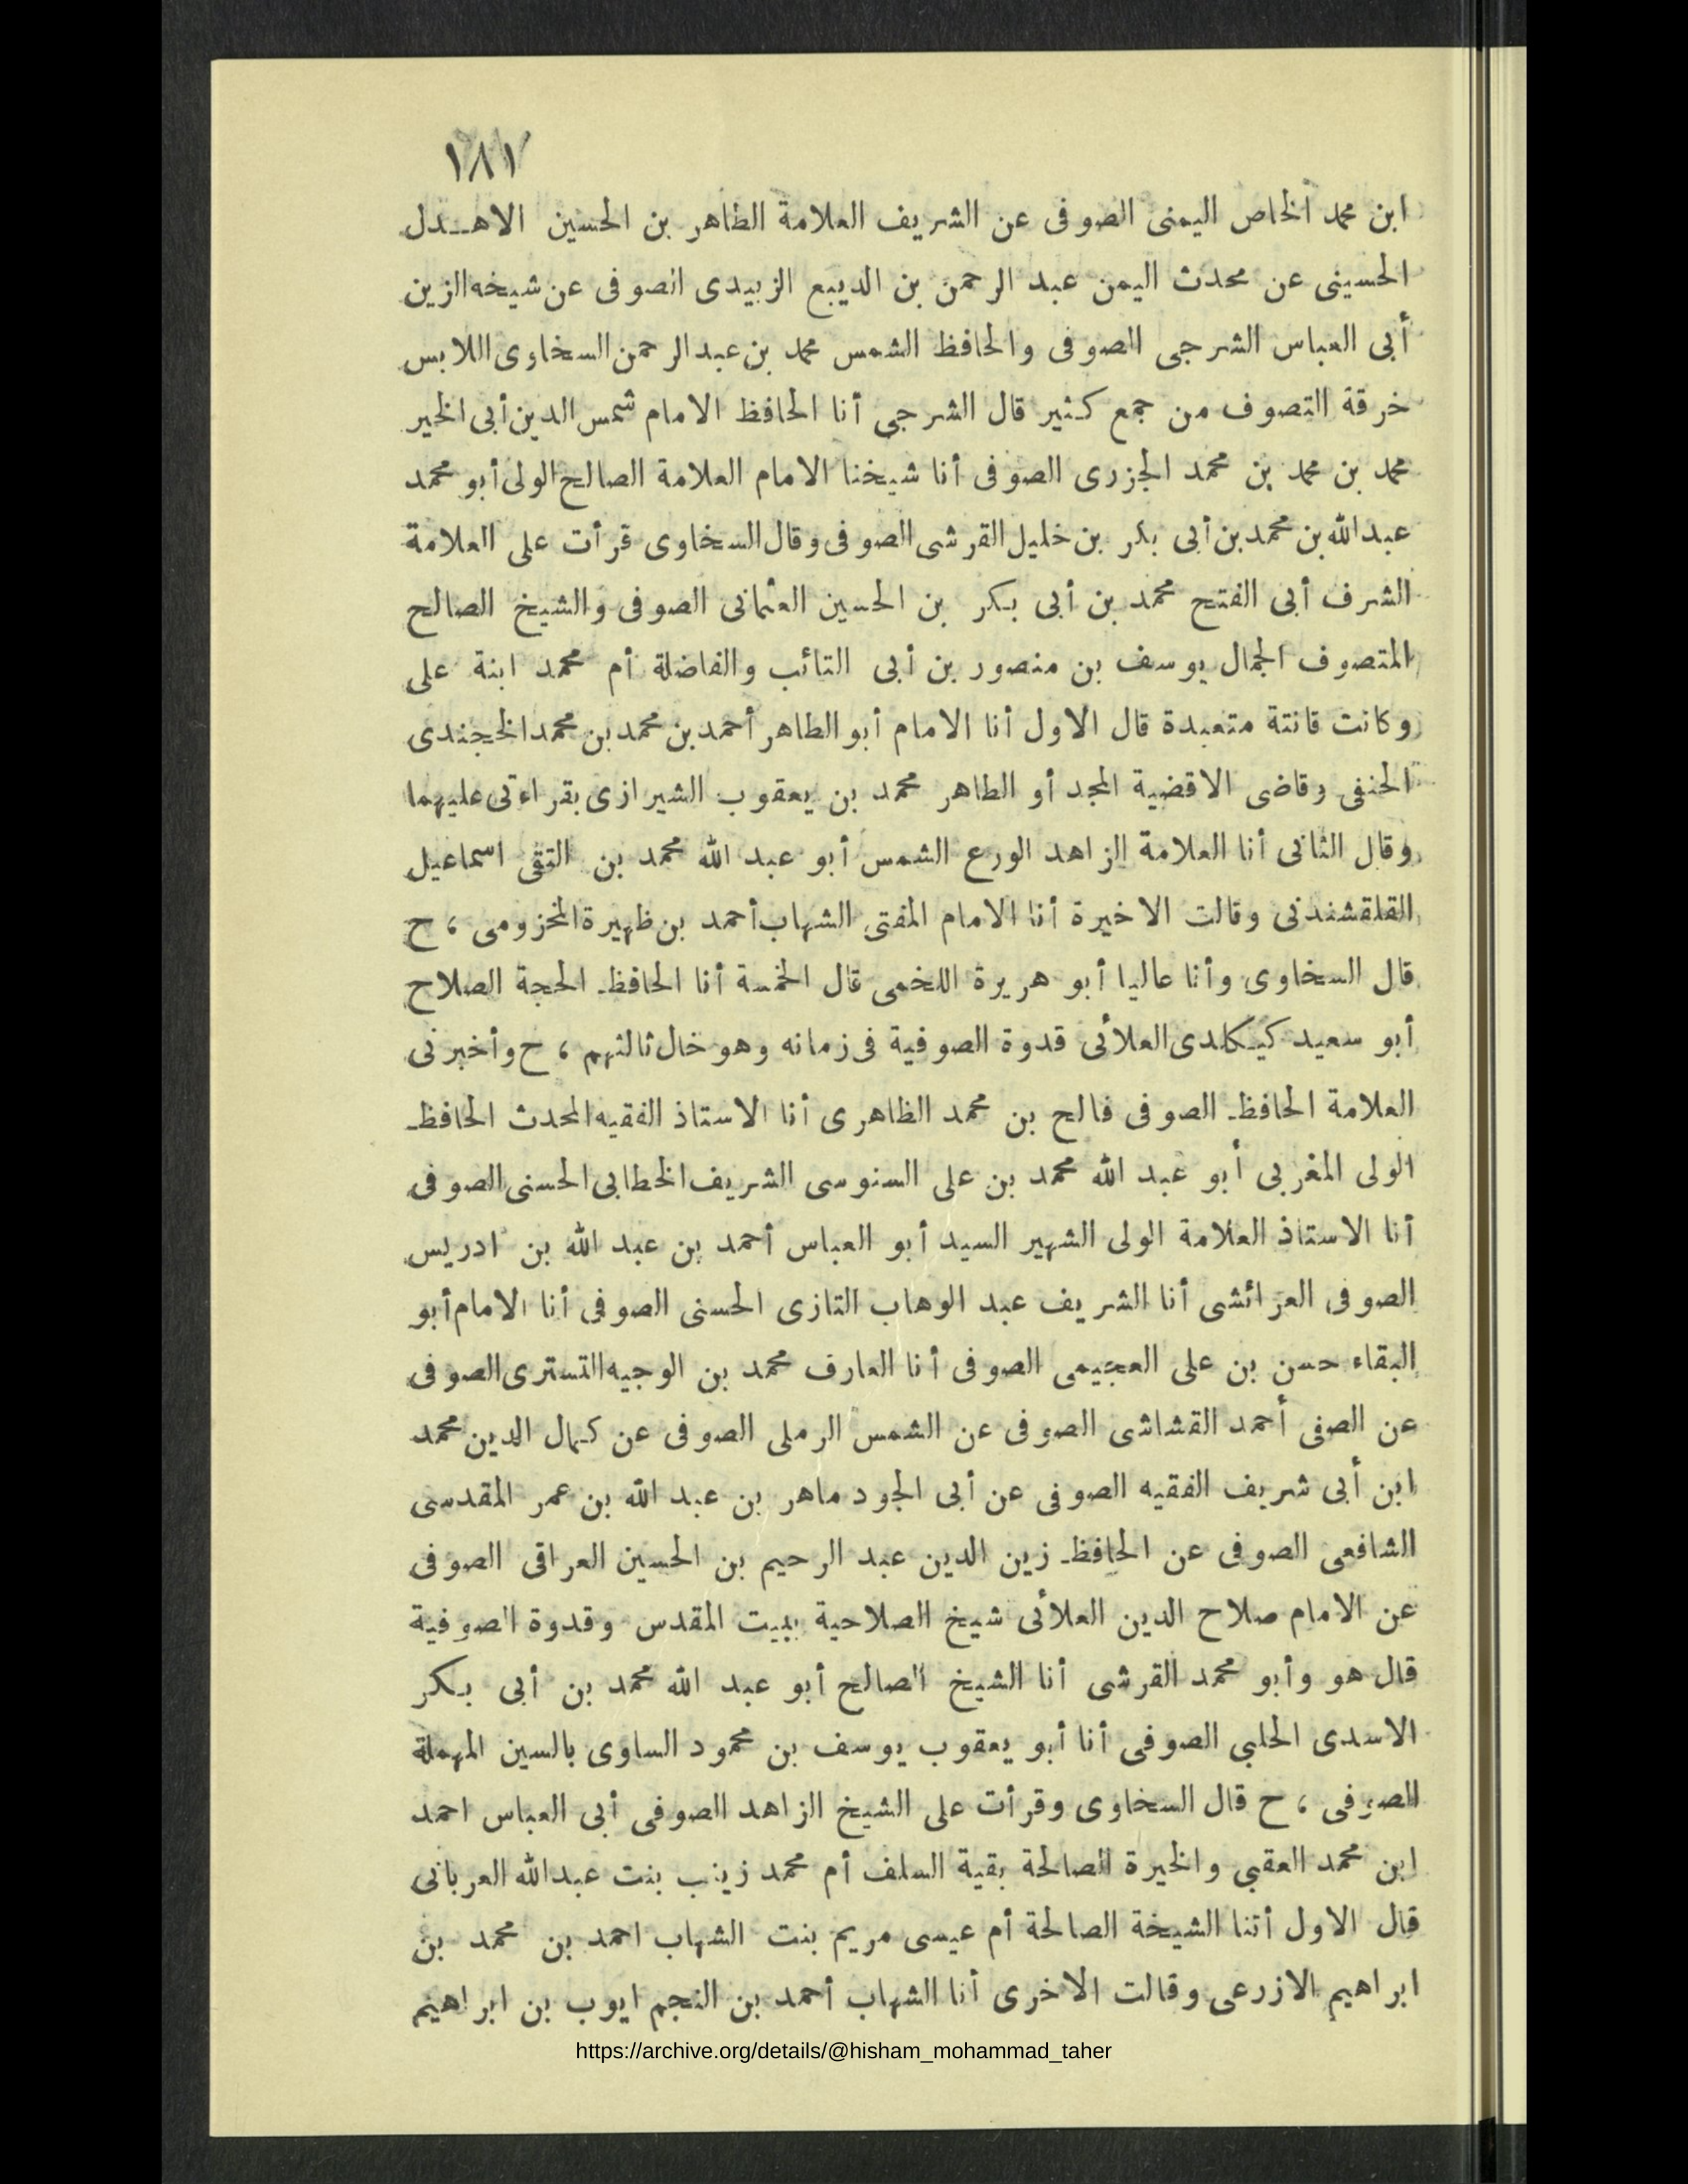 ١٨١
ابن محمد الخاص اليمنى الصوفى عن الشريف العلامة الطاهر بن الحسين الاهـدل
الحسينى عن محدث اليمن عبد الرحمن بن الديبع الزبيدى الصوفى عن شيخه الزين
أبى العباس الشرجى الصوفى والحافظ الشمس محمد بن عبد الرحمن السخاوى اللابس
خرقة التصوف من جمع كثير قال الشرجى أنا الحافظ الامام شمس الدين أبى الخير
محمد بن محمد بن محمد الجزرى الصوفى أنا شيخنا الامام العلامة الصالح الولى أبو محمد
عبد الله بن محمد بن أبى بكر بن خليل القرشى الصوفى وقال السخاوى قرأت على العلامة
الشرف أبى الفتح محمد بن أبى بكر بن الحسين العثمانى الصوفى والشيخ الصالح
المتصوف الجمال يوسف بن منصور بن أبى التائب والفاضلة أم محمد ابنة على
وكانت قانتة متعبدة قال الاول أنا الامام أبو الطاهر أحمد بن محمد بن محمد الخجندى
الحنفى وقاضى الاقضية المجد أو الطاهر محمد بن يعقوب الشيرازى بقراءتى عليهما
وقال الثانى أنا العلامة الزاهد الورع الشمس أبو عبد الله محمد بن التقى اسماعيل
القلقشندى وقالت الاخيرة أنا الامام المفتى الشهاب أحمد بن ظهيرة المخزومى ، ح
قال السخاوى وأنا عاليا أبو هريرة اللخمى قال الخمسة أنا الحافظ الحجة الصلاح
أبو سعيد كيكلدى العلائى قدوة الصوفية فى زمانه وهو خال ثالثهم ، ح وأخبرنى
العلامة الحافظ الصوفى فالح بن محمد الظاهرى أنا الاستاذ الفقيه المحدث الحافظ
الولى المغربى أبو عبد الله محمد بن على السنوسى الشريف الخطابى الحسنى الصوفى
أنا الاستاذ العلامة الولى الشهير السيد أبو العباس أحمد بن عبد الله بن ادريس
الصوفى العرائشى أنا الشريف عبد الوهاب التازى الحسنى الصوفى أنا الامام أبو
البقاء حسن بن على العجيمى الصوفى أنا العارف محمد بن الوجيه التسترى الصوفى
عن الصفى أحمد القشاشى الصوفى عن الشمس الرملى الصوفى عن كمال الدين محمد
ابن أبى شريف الفقيه الصوفى عن أبى الجود ماهر بن عبد الله بن عمر المقدسى
الشافعى الصوفى عن الحافظ زين الدين عبد الرحيم بن الحسين العراقى الصوفى
عن الامام صلاح الدين العلائى شيخ الصلاحية ببيت المقدس وقدوة الصوفية
قال هو وأبو محمد القرشى أنا الشيخ الصالح أبو عبد الله محمد بن أبى بكر
الاسدى الحلبي الصوفى أنا أبو يعقوب يوسف بن محمود الساوى بالسين المهملة
الصوفى ، ح قال السخاوى وقرأت على الشيخ الزاهد الصوفى أبى العباس احمد
ابن محمد العقبي والخيرة الصالحة بقية السلف أم محمد زينب بنت عبد الله العربانى
قال الاول أتنا الشيخة الصالحة أم عيسى مريم بنت الشهاب احمد بن محمد بن
ابراهيم الازرعى وقالت الاخرى أنا الشهاب أحمد بن النجم ايوب بن ابراهيم
https://archive.org/details/@hisham_mohammad_taher